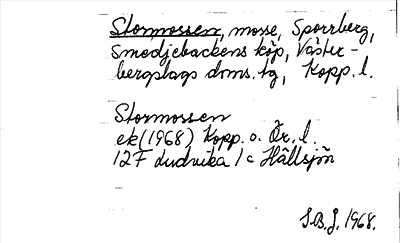 Stormossen, mosse, Sporrberg,
Smedjebackens köp, Väster-
bergslags doms. tg, Kopp. l.
Stormossen
ek (1968) Kopp. o. Ör. l.
12F Ludvika 1c Hällsjön
S.B.J. 1968.